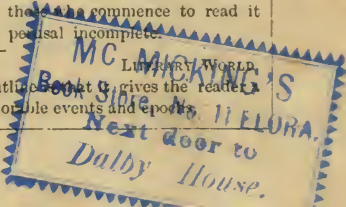 those who commence to read it
perusal incomplete.
LITERARY WORLD.
gives the reader a
events and epochs
MC MICKING'S
Book Store, No. 11 ELORA.
Next door to
Dalby House.